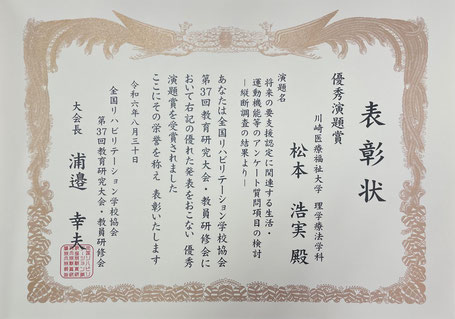 表彰状
優秀演題賞
川崎医療福祉大学 理学療法学科
松本 浩実 殿
演題名
将来の要支援認定に関連する生活・
運動機能等のアンケート質問項目の検討
―縦断調査の結果より―
あなたは全国リハビリテーション学校協会
第37回教育研究大会・教員研修会に
おいて右記の優れた発表をおこない 優秀
演題賞を受賞されました
ここにその栄誉を称え 表彰いたします
令和六年八月三十日
全国リハビリテーション学校協会
第37回教育研究大会・教員研修会
大会長 浦邉 幸夫